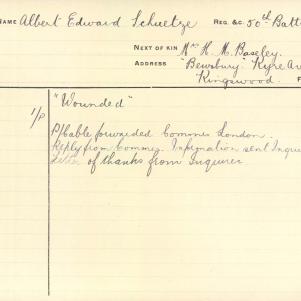 NAME Albert Edward Schuetze REG. &C. 50th Batt
NEXT OF KIN Mrs H. M. Baseley.
ADDRESS "Bewsbury" Kyre Av
Kingswood
"Wounded"
P/Cable forwarded Commrs London.
Reply from Commrs. Information sent Inquire
Letter of thanks from Inquirer